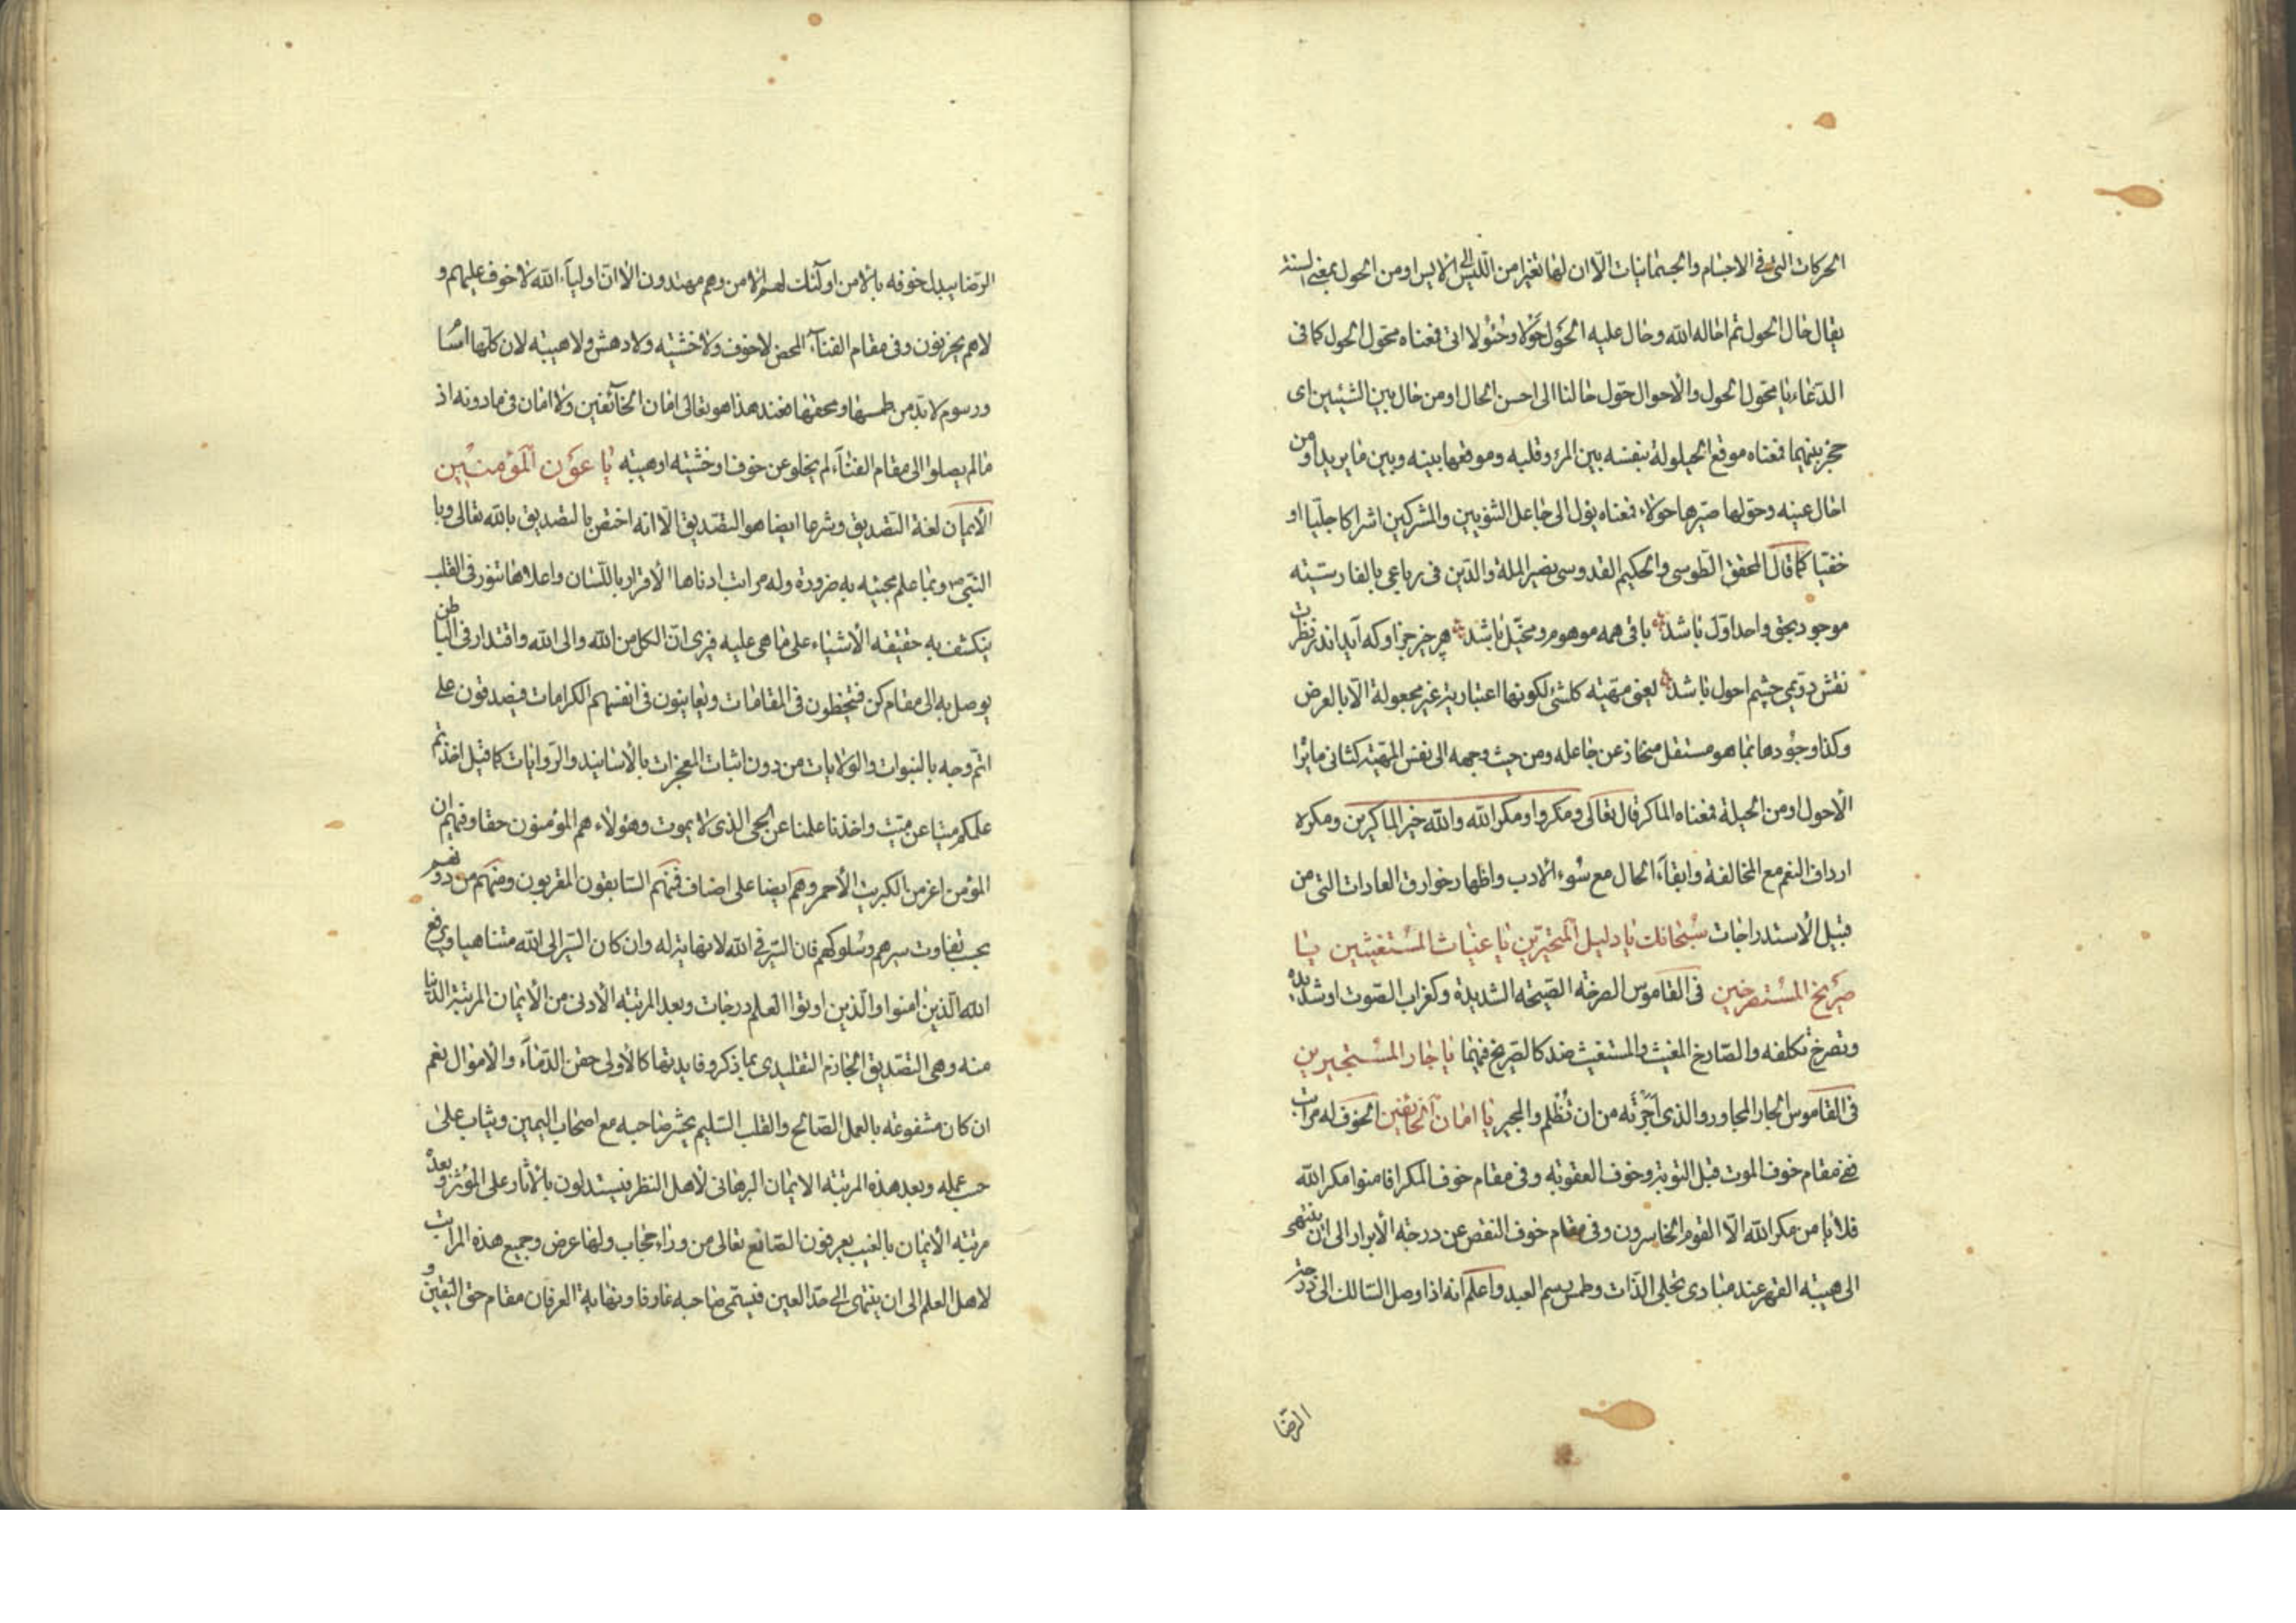 الحركات التى فى الاجسام والجسمانيات الّا ان لها تغيرا من اللّيس الى الايس او من الحول بمعنى السنة
يقال حال الحول تم احاله الله وحال عليه الحَول حَوْلا وحُئولا اتى فمعناه محوّل الحول كما فى
الدّعاء يا محوّل الحول والأحوال حَوّل حالنا الى احسن الحال او من حال بين الشيئين اى
حجز بينهما فمعناه موقع الحيلولة بنفسه بين المرء وقلبه وموقعها بينه وبين ما يريد او من
احال عينه وحوّلها صيّرها حولاء فمعناه يؤل الى جاعل الثنويين والمشركين اشراكا جليّا او
خفيّا كما قال المحقق الطوسى والحكيم القدوسى نصير الملة والدّين فى رباعى بالفارسيّته
موجود بحق واحد اوّل باشد باقى همه موهوم ومخيّل باشد هر چيز جز او كه آيد اندر نظرت
نقش دوّيمى چشم احول باشد يعنى مهيّته كلشئ لكونها اعتبارية غير مجعولة الّا بالعرض
وكذا وجُودها بما هو مستقل منحاز عن جاعله ومن حيث وجهه الى نفس المهيّة كثانى ما يراه
الأحول او من الحيلة فمعناه الماكر قال تعالى ومكروا ومكر الله والله خير الماكرين ومكره
ارداف النعم مع المخالفة وابقآء الحال مع سُوء الادب واظهار خوارق العادات التى من
قبيل الأستدراجات سُبْحانك يا دليل المتحيّرين يا غياث المسْتغيثين يا
صَريخ المسْتصرخين فى القاموس الصرخة الصّيحته الشديدة وكغراب الصّوت او شديدُه
وتصرخ تكلفه والصّارخ المغيث والمستغيث ضد كالصّريخ فيهما يا جار المسْتجيرين
فى القاموس الجار المجاور والذى اَجَرْتَه من ان تُظْلم والمجير يا امان الخائفين الخوف له مراتب
فهى مقام خوف الموت قبل التوبة وخوف العقوبة وفى مقام خوف المكر افامنوا مكر الله
فلا يأمن مكر الله الّا القوم الخاسرون وفى مقام خوف النقص عن درجة الأبرار الى ان ينتهى
الى هيبته القهر عند مبادى تجلى الذّات وطمس رسم العبد واعلم انه اذا وصل السّالك الى درجة
الرضا
الرّضا يبدل خوفه بالامن اولئك لهم الامن وهم مهتدون الا انّ اولياء الله لا خوف عليهم و
لا هم يحزنون وفى مقام الفنآء المحض لا خوف ولا خشيته ولا دهش ولا هيبته لان كلّها
ورسوم لا بدّ من طمسها ومحقها فعند هذا هو تعالى امان الخآئفين ولا امان فى ما دونه اذ
ما لم يصلوا الى مقام الفنآء لم يخلو عن خوف او خشيته او هيبته يا عَوْن المؤْمنين
الأيمان لغة التصديق وشرعا ايضا هو التصديق الّا انه اختصّ بالتصديق بالله تعالى وبا
النّبىّ ص وبما علم مجيئه به ضرورة وله مراتب ادناها الأقرار باللّسان واعلاها تنوّر فى القلب
ينكشف به حقيقته الأشياء على ما هى عليه فيرى انّ الكل من الله والى الله واقتدار فى الباطن
يوصل به الى مقام كن فيتحظون فى المقامات ويعاينون فى انفسهم الكرامات فيصدقون على
اتّم وجه بالنبوات والولايات من دون اثبات المعجزات بالأسانيد والرّوايات كما قيل اخذتم
علمكم ميتا عن ميّت واخذنا علمنا عن الحى الذى لا يموت وهؤلاء هم المؤمنون حقا وفيهم ان
المؤمن اعز من الكبريت الأحمر وهم ايضا على اصناف فمنهم السّابقون المقربون ومنهم من دونهم
بحسب تفاوت سيرهم وسُلوكهم فان السّير فى الله لا نهاية له وان كان السّير الى الله متناهيا ويرفع
الله الّذين امنوا والّذين اوتوا العلم درجات وبعد المرتبته الأدنى من الأيمان المرتبة الدنيا
منه وهى التّصديق الجازم التقليدى بما ذكر وفايدتها كالأولى حقن الدّماء والأموال نعم
ان كان مشفوعة بالعمل الصّالح والقلب السّليم يحشر صاحبه مع اصحاب اليمين ويثاب على
حسب عمله وبعد هذه المرتبته الايمان البرهانى لأهل النظر فيستدلون بالأثار على المؤثّر وبعدُ
مرتبته الأيمان بالغيب يعرفون الصّانع تعالى من وراء حجاب ولها عرض وجميع هذه المراتب
لاهل العلم الى ان ينتهى الى حدّ العين فيسمّى صاحبه عارفا ونهاية العرفان مقام حق اليقين و